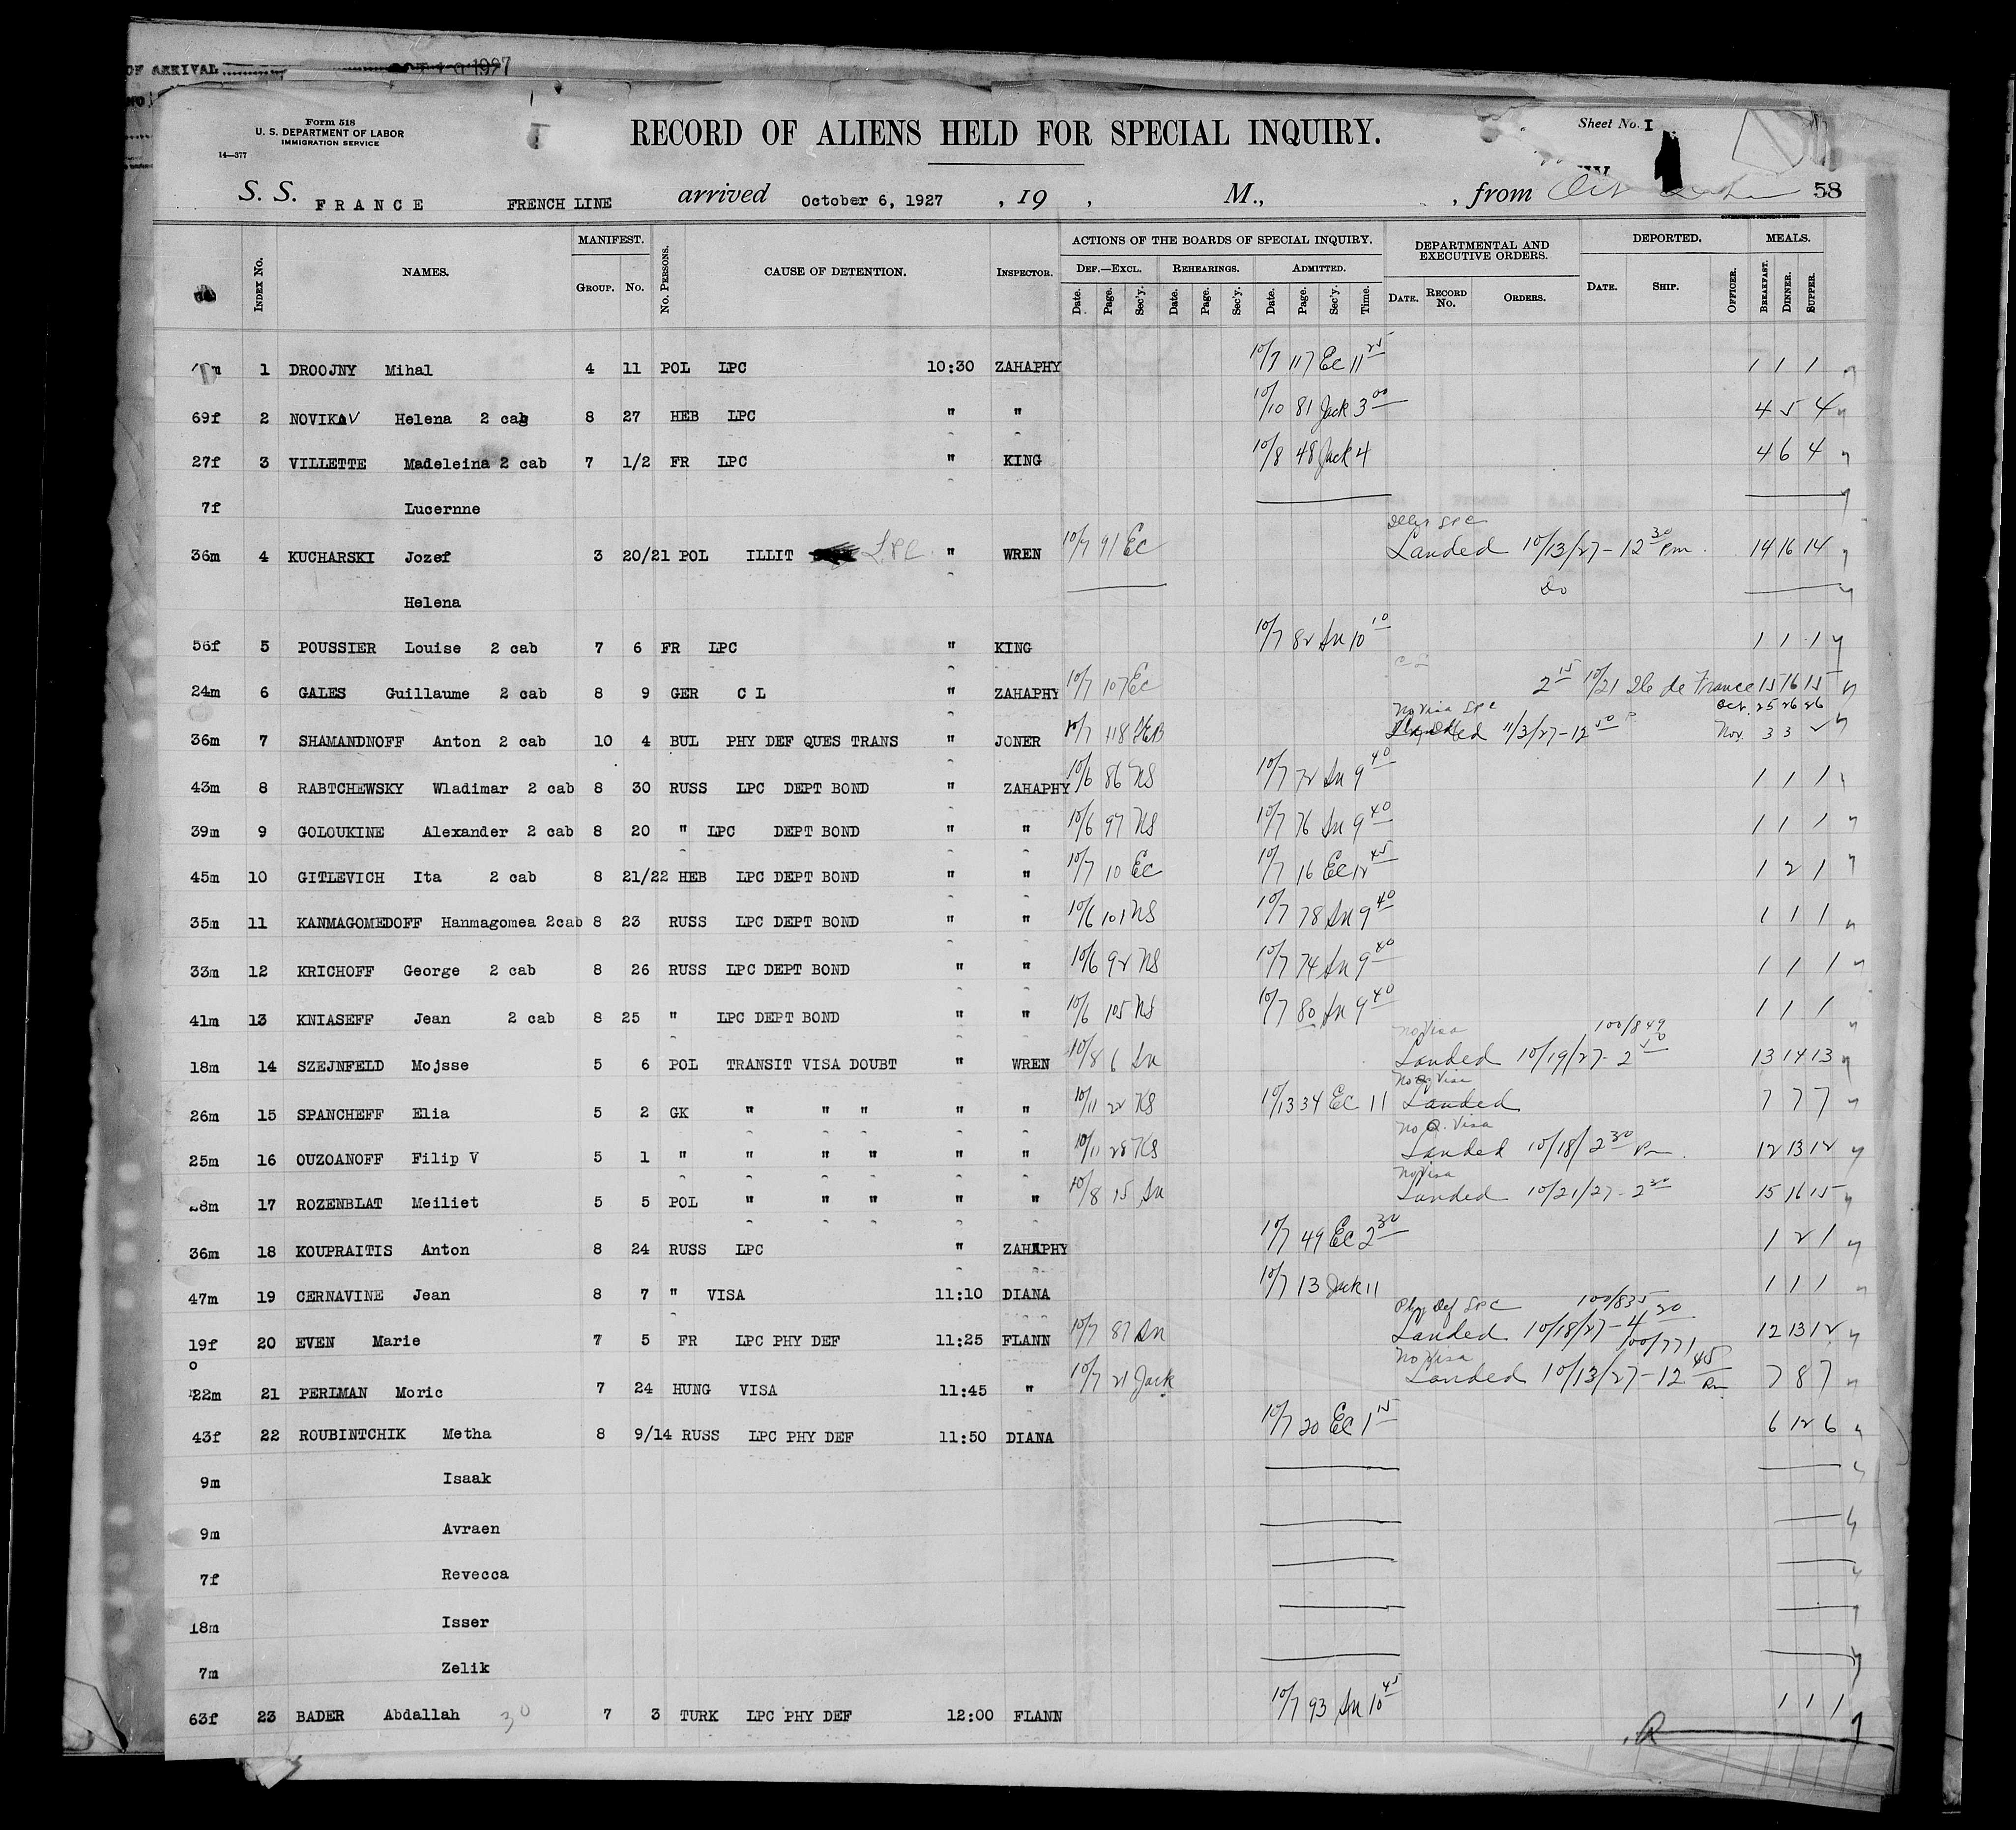 OF ARRIVAL 1927
Form 518
U. S. DEPARTMENT OF LABOR
IMMIGRATION SERVICE
14—377
RECORD OF ALIENS HELD FOR SPECIAL INQUIRY.
Sheet No. I
S. S. FRANCE FRENCH LINE arrived October 6, 1927 , 19 , M., , from 58
INDEX No. NAMES. MANIFEST. GROUP. No. No. PERSONS. CAUSE OF DETENTION. INSPECTOR. ACTIONS OF THE BOARDS OF SPECIAL INQUIRY. DEF.—EXCL. Date. Page. Sec'y. REHEARINGS. Date. Page. Sec'y. ADMITTED. Date. Page. Sec'y. Time. DEPARTMENTAL AND EXECUTIVE ORDERS. DATE. RECORD No. ORDERS. DEPORTED. DATE. SHIP. OFFICER. MEALS. BREAKFAST. DINNER. SUPPER.
m 1 DROOJNY Mihal 4 11 POL LPC 10:30 ZAHAPHY 10/7 117 Ec 11 25 1 1 1
69f 2 NOVIKAV Helena 2 cab 8 27 HEB LPC " " 10/10 81 Jack 3 00 4 5 4
27f 3 VILLETTE Madeleina 2 cab 7 1/2 FR LPC " KING 10/8 48 Jack 4 4 6 4
7f Lucernne
36m 4 KUCHARSKI Jozef 3 20/21 POL ILLIT LPC " WREN 10/7 91 Ec Landed 10/13/27 - 12 30 Pm. 14 16 14
Helena Do
56f 5 POUSSIER Louise 2 cab 7 6 FR LPC " KING 10/7 82 Sn 10 10 1 1 1
24m 6 GALES Guillaume 2 cab 8 9 GER C L " ZAHAPHY 10/7 107 Ec 2 15 10/21 Ile de France 15 16 15
Oct. 25 26 26
No Visa LPC
36m 7 SHAMANDNOFF Anton 2 cab 10 4 BUL PHY DEF QUES TRANS " JONER 10/7 118 Landed 11/3/27 - 12 50 P Nov. 3 3
43m 8 RABTCHEWSKY Wladimar 2 cab 8 30 RUSS LPC DEPT BOND " ZAHAPHY 10/6 86 NS 10/7 72 Sn 9 40 1 1 1
39m 9 GOLOUKINE Alexander 2 cab 8 20 " LPC DEPT BOND " " 10/6 97 NS 10/7 76 Sn 9 40 1 1 1
45m 10 GITLEVICH Ita 2 cab 8 21/22 HEB LPC DEPT BOND " " 10/7 10 Ec 10/7 16 Ec 12 45 1 2 1
35m 11 KANMAGOMEDOFF Hanmagomea 2cab 8 23 RUSS LPC DEPT BOND " " 10/6 101 NS 10/7 78 Sn 9 40 1 1 1
33m 12 KRICHOFF George 2 cab 8 26 RUSS LPC DEPT BOND " " 10/6 92 NS 10/7 74 Sn 9 40 1 1 1
41m 13 KNIASEFF Jean 2 cab 8 25 " LPC DEPT BOND " " 10/6 105 NS 10/7 80 Sn 9 40 1 1 1
No Visa 100/849
18m 14 SZEJNFELD Mojsse 5 6 POL TRANSIT VISA DOUBT " WREN 10/8 6 Sn Landed 10/19/27 - 2 50 13 14 13
No Q Visa
26m 15 SPANCHEFF Elia 5 2 GK " " " " " 10/11 22 KS 10/13 34 Ec 11 Landed 7 7 7
No Q. Visa
25m 16 OUZOANOFF Filip V 5 1 " " " " " " 10/11 28 KS Landed 10/18/ 2 30 Pm. 12 13 12
No Visa
28m 17 ROZENBLAT Meiliet 5 5 POL " " " " " 10/8 15 Sn Landed 10/21/27 - 2 30 15 16 15
36m 18 KOUPRAITIS Anton 8 24 RUSS LPC " ZAHAPHY 10/7 49 Ec 2 30 1 2 1
47m 19 CERNAVINE Jean 8 7 " VISA 11:10 DIANA 10/7 13 Jack 11 1 1 1
Phy Def LPC 100/835
19f 20 EVEN Marie 7 5 FR LPC PHY DEF 11:25 FLANN 10/7 87 Sn Landed 10/18/27 - 4 20 12 13 12
No Visa 100/771
22m 21 PERLMAN Moric 7 24 HUNG VISA 11:45 " 10/7 21 Jack Landed 10/13/27 - 12 45 Pm 7 8 7
43f 22 ROUBINTCHIK Metha 8 9/14 RUSS LPC PHY DEF 11:50 DIANA 10/7 20 Ec 1 15 6 12 6
9m Isaak
9m Avraen
7f Revecca
18m Isser
7m Zelik
63f 23 BADER Abdallah 30 7 3 TURK LPC PHY DEF 12:00 FLANN 10/7 93 Sn 10 45 1 1 1